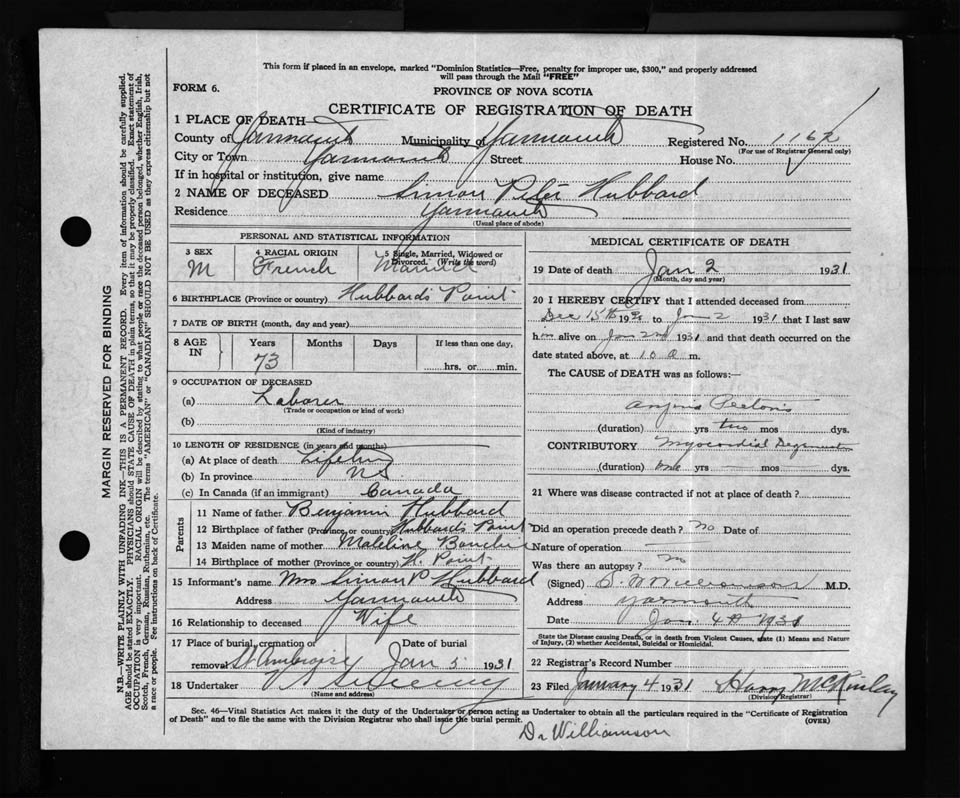 This form if placed in an envelope, marked "Dominion Statistics—Free, penalty for improper use, $300," and properly addressed
will pass through the Mail "FREE"
FORM 6.
PROVINCE OF NOVA SCOTIA
CERTIFICATE OF REGISTRATION OF DEATH
1 PLACE OF DEATH
County of Yarmouth Municipality of Yarmouth Registered No. 1162
(For use of Registrar General only)
City or Town Yarmouth Street House No.
If in hospital or institution, give name
2 NAME OF DECEASED Simon Peter Hubbard
Residence Yarmouth
(Usual place of abode)
PERSONAL AND STATISTICAL INFORMATION
3 SEX 4 RACIAL ORIGIN 5 Single, Married, Widowed or
Divorced. (Write the word)
M French Married
6 BIRTHPLACE (Province or country) Hubbards Point
7 DATE OF BIRTH (month, day and year)
8 AGE IN Years Months Days If less than one day,
73 hrs. or min.
9 OCCUPATION OF DECEASED
(a) Laborer
(Trade or occupation or kind of work)
(b)
(Kind of industry)
10 LENGTH OF RESIDENCE (in years and months)
(a) At place of death Lifetime
(b) In province NS
(c) In Canada (if an immigrant) Canada
Parents
11 Name of father Benjamin Hubbard
12 Birthplace of father (Province or country) Hubbards Point
13 Maiden name of mother
14 Birthplace of mother (Province or country) H. Point
15 Informant's name Mrs Simon P Hubbard
Address Yarmouth
16 Relationship to deceased Wife
17 Place of burial, cremation or Date of burial
removal St Ambroise Jan 5 1931
18 Undertaker V S Sweeny
(Name and address)
MEDICAL CERTIFICATE OF DEATH
19 Date of death Jan 2 1931
(Month, day and year)
20 I HEREBY CERTIFY that I attended deceased from
Dec 15th 19 to Jan 2 1931 that I last saw
him alive on Jan 2nd 1931 and that death occurred on the
date stated above, at 10 a m.
The CAUSE of DEATH was as follows:—
Angina Pectoris
(duration) yrs two mos dys.
CONTRIBUTORY Myocardial
(duration) one yrs — mos dys.
21 Where was disease contracted if not at place of death?
Did an operation precede death? No Date of
Nature of operation —
Was there an autopsy? no
(Signed) Williamson M.D.
Address Yarmouth
Date Jan. 4th 1931
State the Disease causing Death, or in death from Violent Causes, state (1) Means and Nature
of Injury, (2) whether Accidental, Suicidal or Homicidal.
22 Registrar's Record Number
23 Filed January 4 1931 Harry McKinlay
(Division Registrar)
Sec. 46—Vital Statistics Act makes it the duty of the Undertaker or person acting as Undertaker to obtain all the particulars required in the "Certificate of Registration
of Death" and to file the same with the Division Registrar who shall issue the burial permit.
(OVER)
Dr Williamson
MARGIN RESERVED FOR BINDING
N.B.—WRITE PLAINLY WITH UNFADING INK—THIS IS A PERMANENT RECORD. Every item of information should be carefully supplied.
AGE should be stated EXACTLY. PHYSICIANS should STATE CAUSE OF DEATH in plain terms, so that it may be properly classified. Exact statement of
OCCUPATION is very important. RACIAL ORIGIN will be described by stating to what people or race the deceased person belonged, whether English, Irish,
Scotch, French, German, Russian, Ruthenian, etc. The terms "AMERICAN" or "CANADIAN" SHOULD NOT BE USED as they express citizenship but not
a race or people. See instructions on back of Certificate.